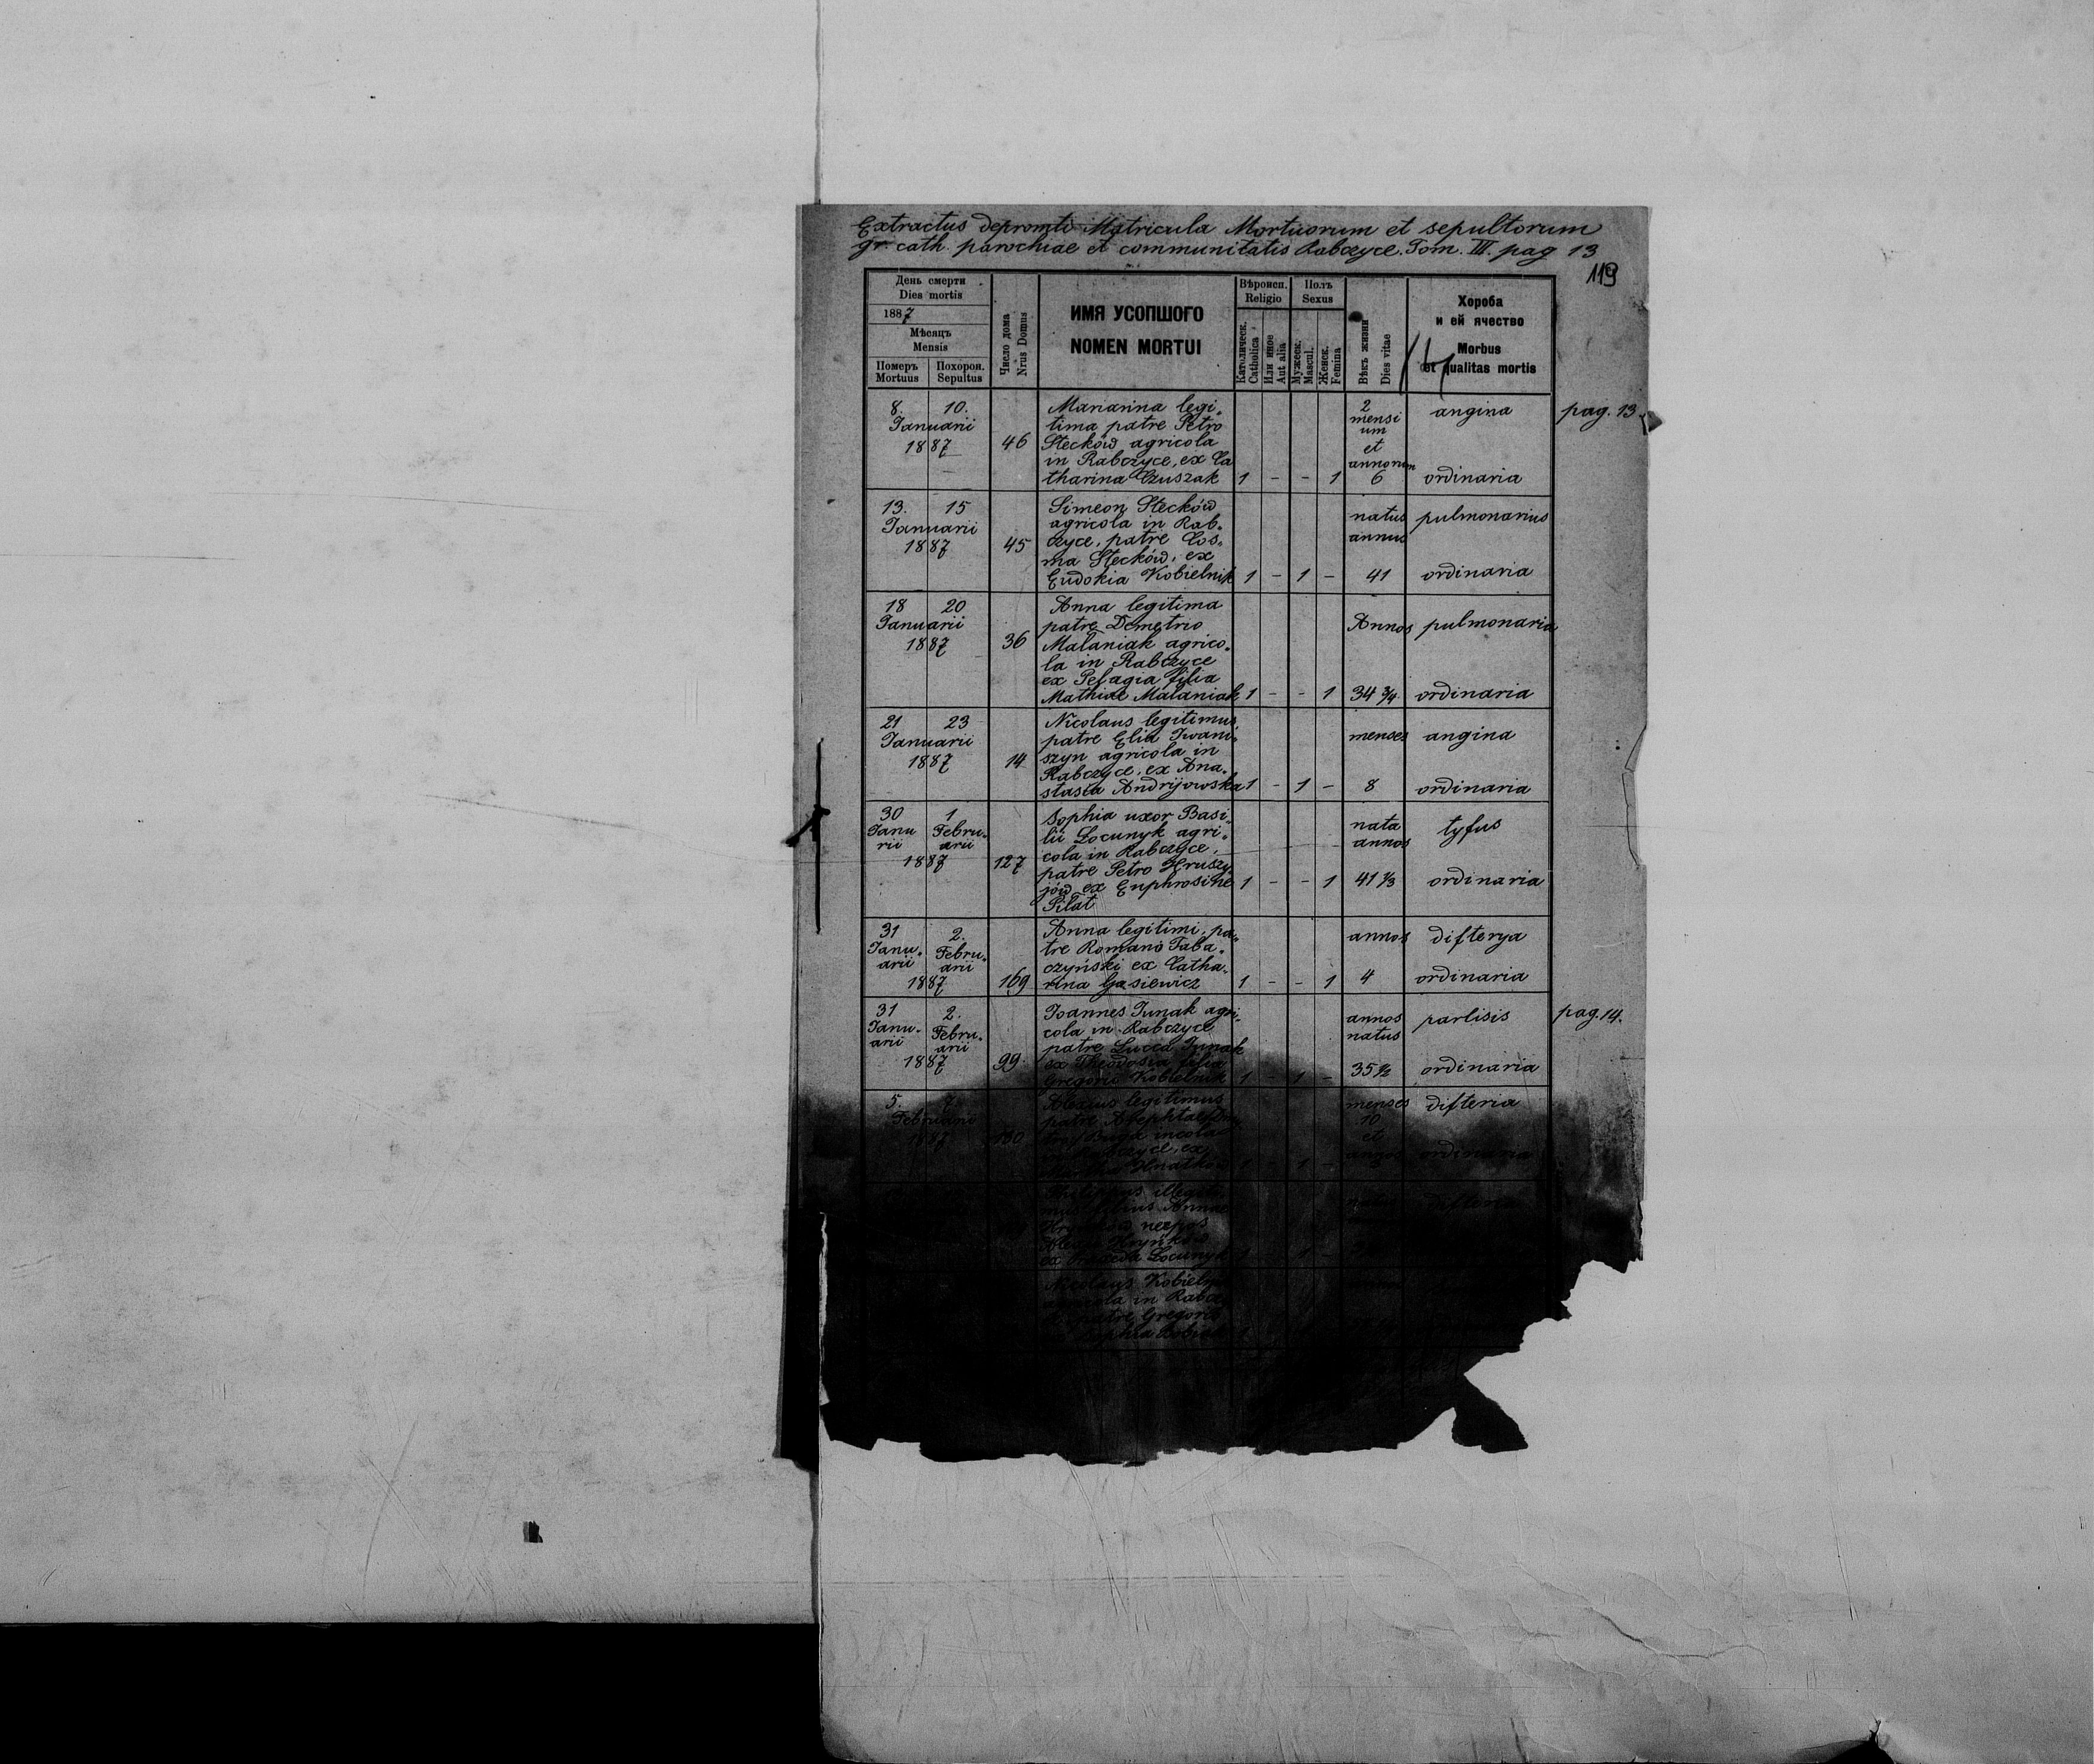 Extractus depromti Matricula Mortuorum et sepultorum
gr. cath. parochiae et communitatis Rabczyce. Tom. III. pag 13
119
День смерти
Dies mortis
1887
Мѣсяцъ
Mensis
Померъ
Mortuus
Похорон.
Sepultus
Число дома
Nrus Domus
ИМЯ УСОПШОГО
NOMEN MORTUI
Вѣроисп.
Religio
Католическ.
Catholica
Или иное
Aut alia
Полъ
Sexus
Мужеск.
Mascul.
Женск.
Femina
Вѣкъ жизни
Dies vitae
Хороба
и ей ячество
Morbus
et qualitas mortis
8. 10.
Januarii
1887
46
Marianna legi-
tima patre Petro
Steckód agricola
in Rabczyce, ex Ca
tharina Czuszak
1 - - 1
2
mensi
um
et
annorum
6
angina
ordinaria
pag. 13
13. 15
Januarii
1887
45
Simeon Steckód
agricola in Rab-
czyce, patre Cos-
ma Steckód, ex
Eudokia Kobielnik
1 - 1 -
natus
annus
41
pulmonarius
ordinaria
18 20
Januarii
1887
36
Anna legitima
patre Demetrio
Malaniak agrico-
la in Rabczyce
ex Pelagia filia
Mathiae Malaniak
1 - - 1
Annos
34 3/4
pulmonaria
ordinaria
21 23
Januarii
1887
14
Nicolaus legitimus
patre Elia Iwani-
szyn agricola in
Rabczyce, ex Ana-
stasia Andrijowska
1 - 1 -
menses
8
angina
ordinaria
30 1
Janu Febru-
rii arii
1887
127
Sophia uxor Basi-
lii Łocunyk agri-
cola in Rabczyce,
patre Petro Hruszy
jód ex Euphrosine
Pilat
1 - - 1
nata
annos
41 1/3
tyfus
ordinaria
31 2.
Janu- Febru-
arii arii
1887
169
Anna legitimi, pa-
tre Romano Taba-
czyński ex Catha-
rina Gasiewicz
1 - - 1
annos
4
difterya
ordinaria
31 2.
Janu- Febru-
arii arii
1887
99
Joannes Junak agri-
cola in Rabczyce
patre Lucca Junak
ex Theodosia filia
Gregorii Kobielnik
1 - 1 -
annos
natus
35 1/2
parlisis
ordinaria
pag. 14.
5. 7.
Februarii
1887
130
Alexius legitimus
patre
incola
Rabczyce, ex
1 - 1 -
menses
10
et
annos
difteria
ordinaria
Philippus illegiti-
mus filius Annae
nezpos
Łocunyk
1 - 1 -
difteria
Nicolaus Kobielnik
agricola in Rabczy
patre Gregorio
1